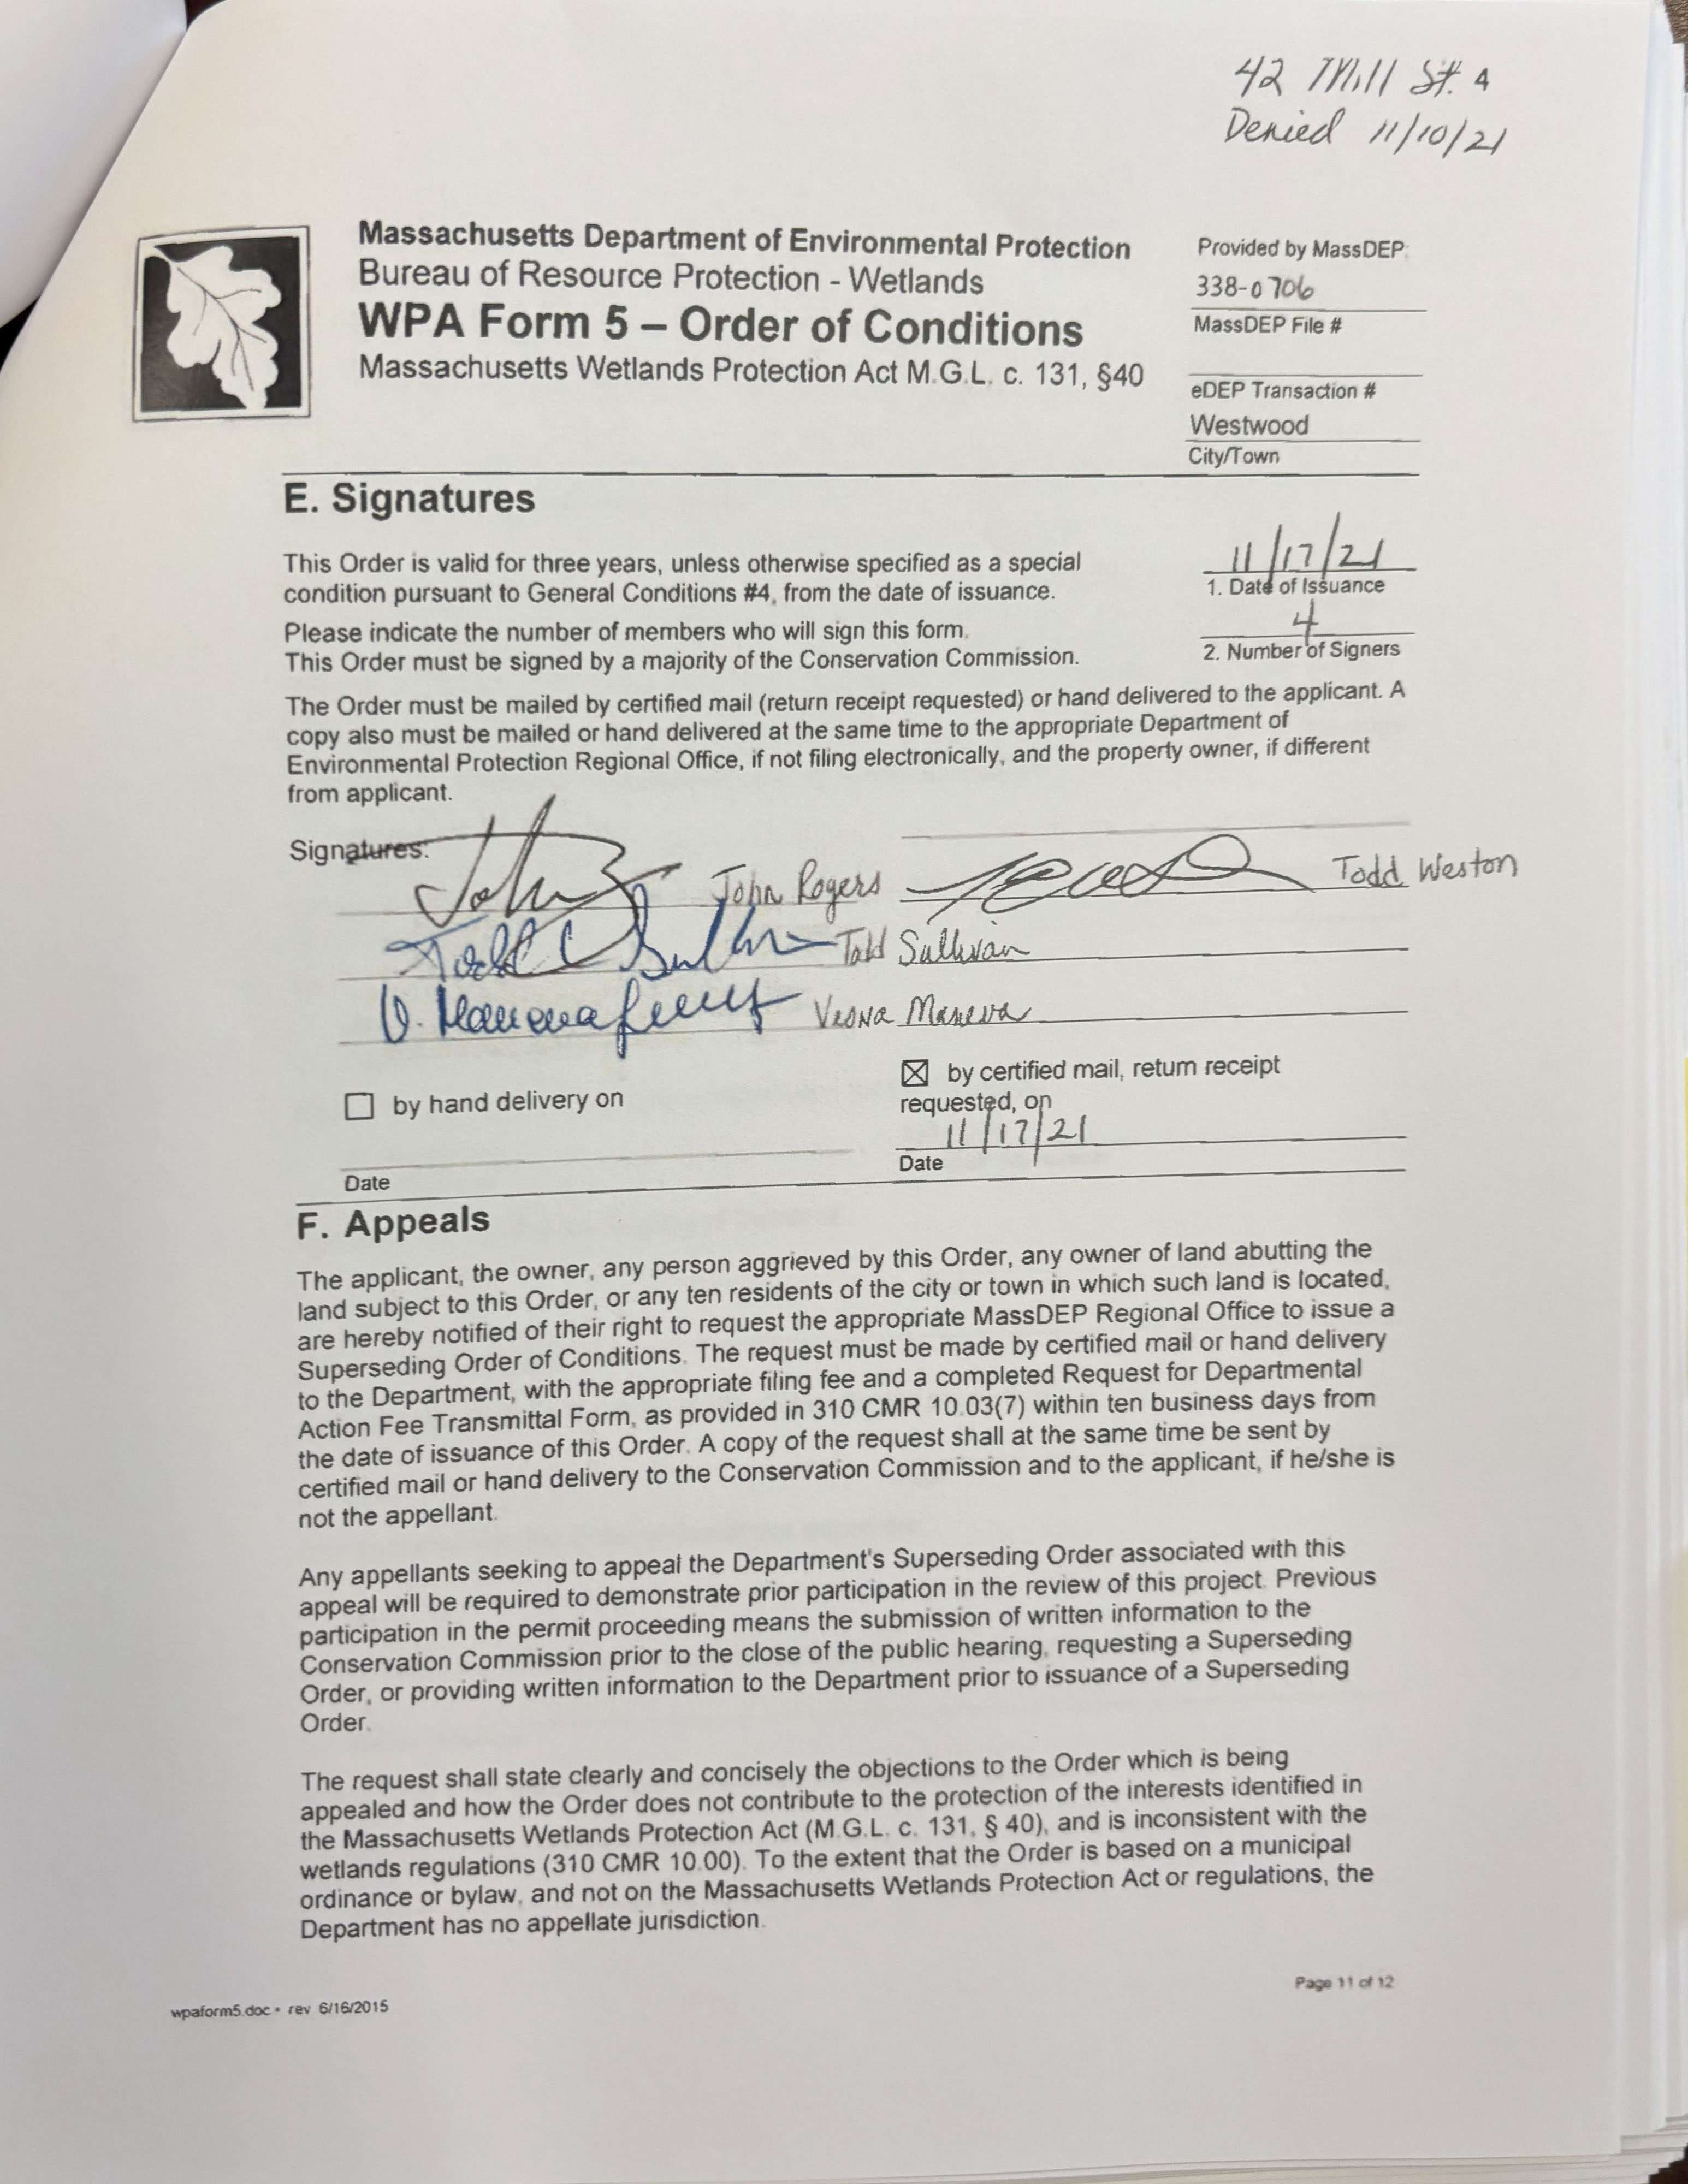 42 Mill St. 4
Denied 11/10/21
Massachusetts Department of Environmental Protection
Bureau of Resource Protection - Wetlands
WPA Form 5 – Order of Conditions
Massachusetts Wetlands Protection Act M.G.L. c. 131, §40
Provided by MassDEP:
338-0706
MassDEP File #
eDEP Transaction #
Westwood
City/Town
E. Signatures
This Order is valid for three years, unless otherwise specified as a special
condition pursuant to General Conditions #4, from the date of issuance.
11/17/21
1. Date of Issuance
Please indicate the number of members who will sign this form.
This Order must be signed by a majority of the Conservation Commission.
4
2. Number of Signers
The Order must be mailed by certified mail (return receipt requested) or hand delivered to the applicant. A
copy also must be mailed or hand delivered at the same time to the appropriate Department of
Environmental Protection Regional Office, if not filing electronically, and the property owner, if different
from applicant.
Signatures:
John Rogers
Todd Weston
Todd C Sullivan Todd Sullivan
Vesna Maneva
by hand delivery on
Date
by certified mail, return receipt
requested, on
11/17/21
Date
F. Appeals
The applicant, the owner, any person aggrieved by this Order, any owner of land abutting the
land subject to this Order, or any ten residents of the city or town in which such land is located,
are hereby notified of their right to request the appropriate MassDEP Regional Office to issue a
Superseding Order of Conditions. The request must be made by certified mail or hand delivery
to the Department, with the appropriate filing fee and a completed Request for Departmental
Action Fee Transmittal Form, as provided in 310 CMR 10.03(7) within ten business days from
the date of issuance of this Order. A copy of the request shall at the same time be sent by
certified mail or hand delivery to the Conservation Commission and to the applicant, if he/she is
not the appellant.
Any appellants seeking to appeal the Department's Superseding Order associated with this
appeal will be required to demonstrate prior participation in the review of this project. Previous
participation in the permit proceeding means the submission of written information to the
Conservation Commission prior to the close of the public hearing, requesting a Superseding
Order, or providing written information to the Department prior to issuance of a Superseding
Order.
The request shall state clearly and concisely the objections to the Order which is being
appealed and how the Order does not contribute to the protection of the interests identified in
the Massachusetts Wetlands Protection Act (M.G.L. c. 131, § 40), and is inconsistent with the
wetlands regulations (310 CMR 10.00). To the extent that the Order is based on a municipal
ordinance or bylaw, and not on the Massachusetts Wetlands Protection Act or regulations, the
Department has no appellate jurisdiction.
wpaform5.doc • rev. 6/16/2015
Page 11 of 12